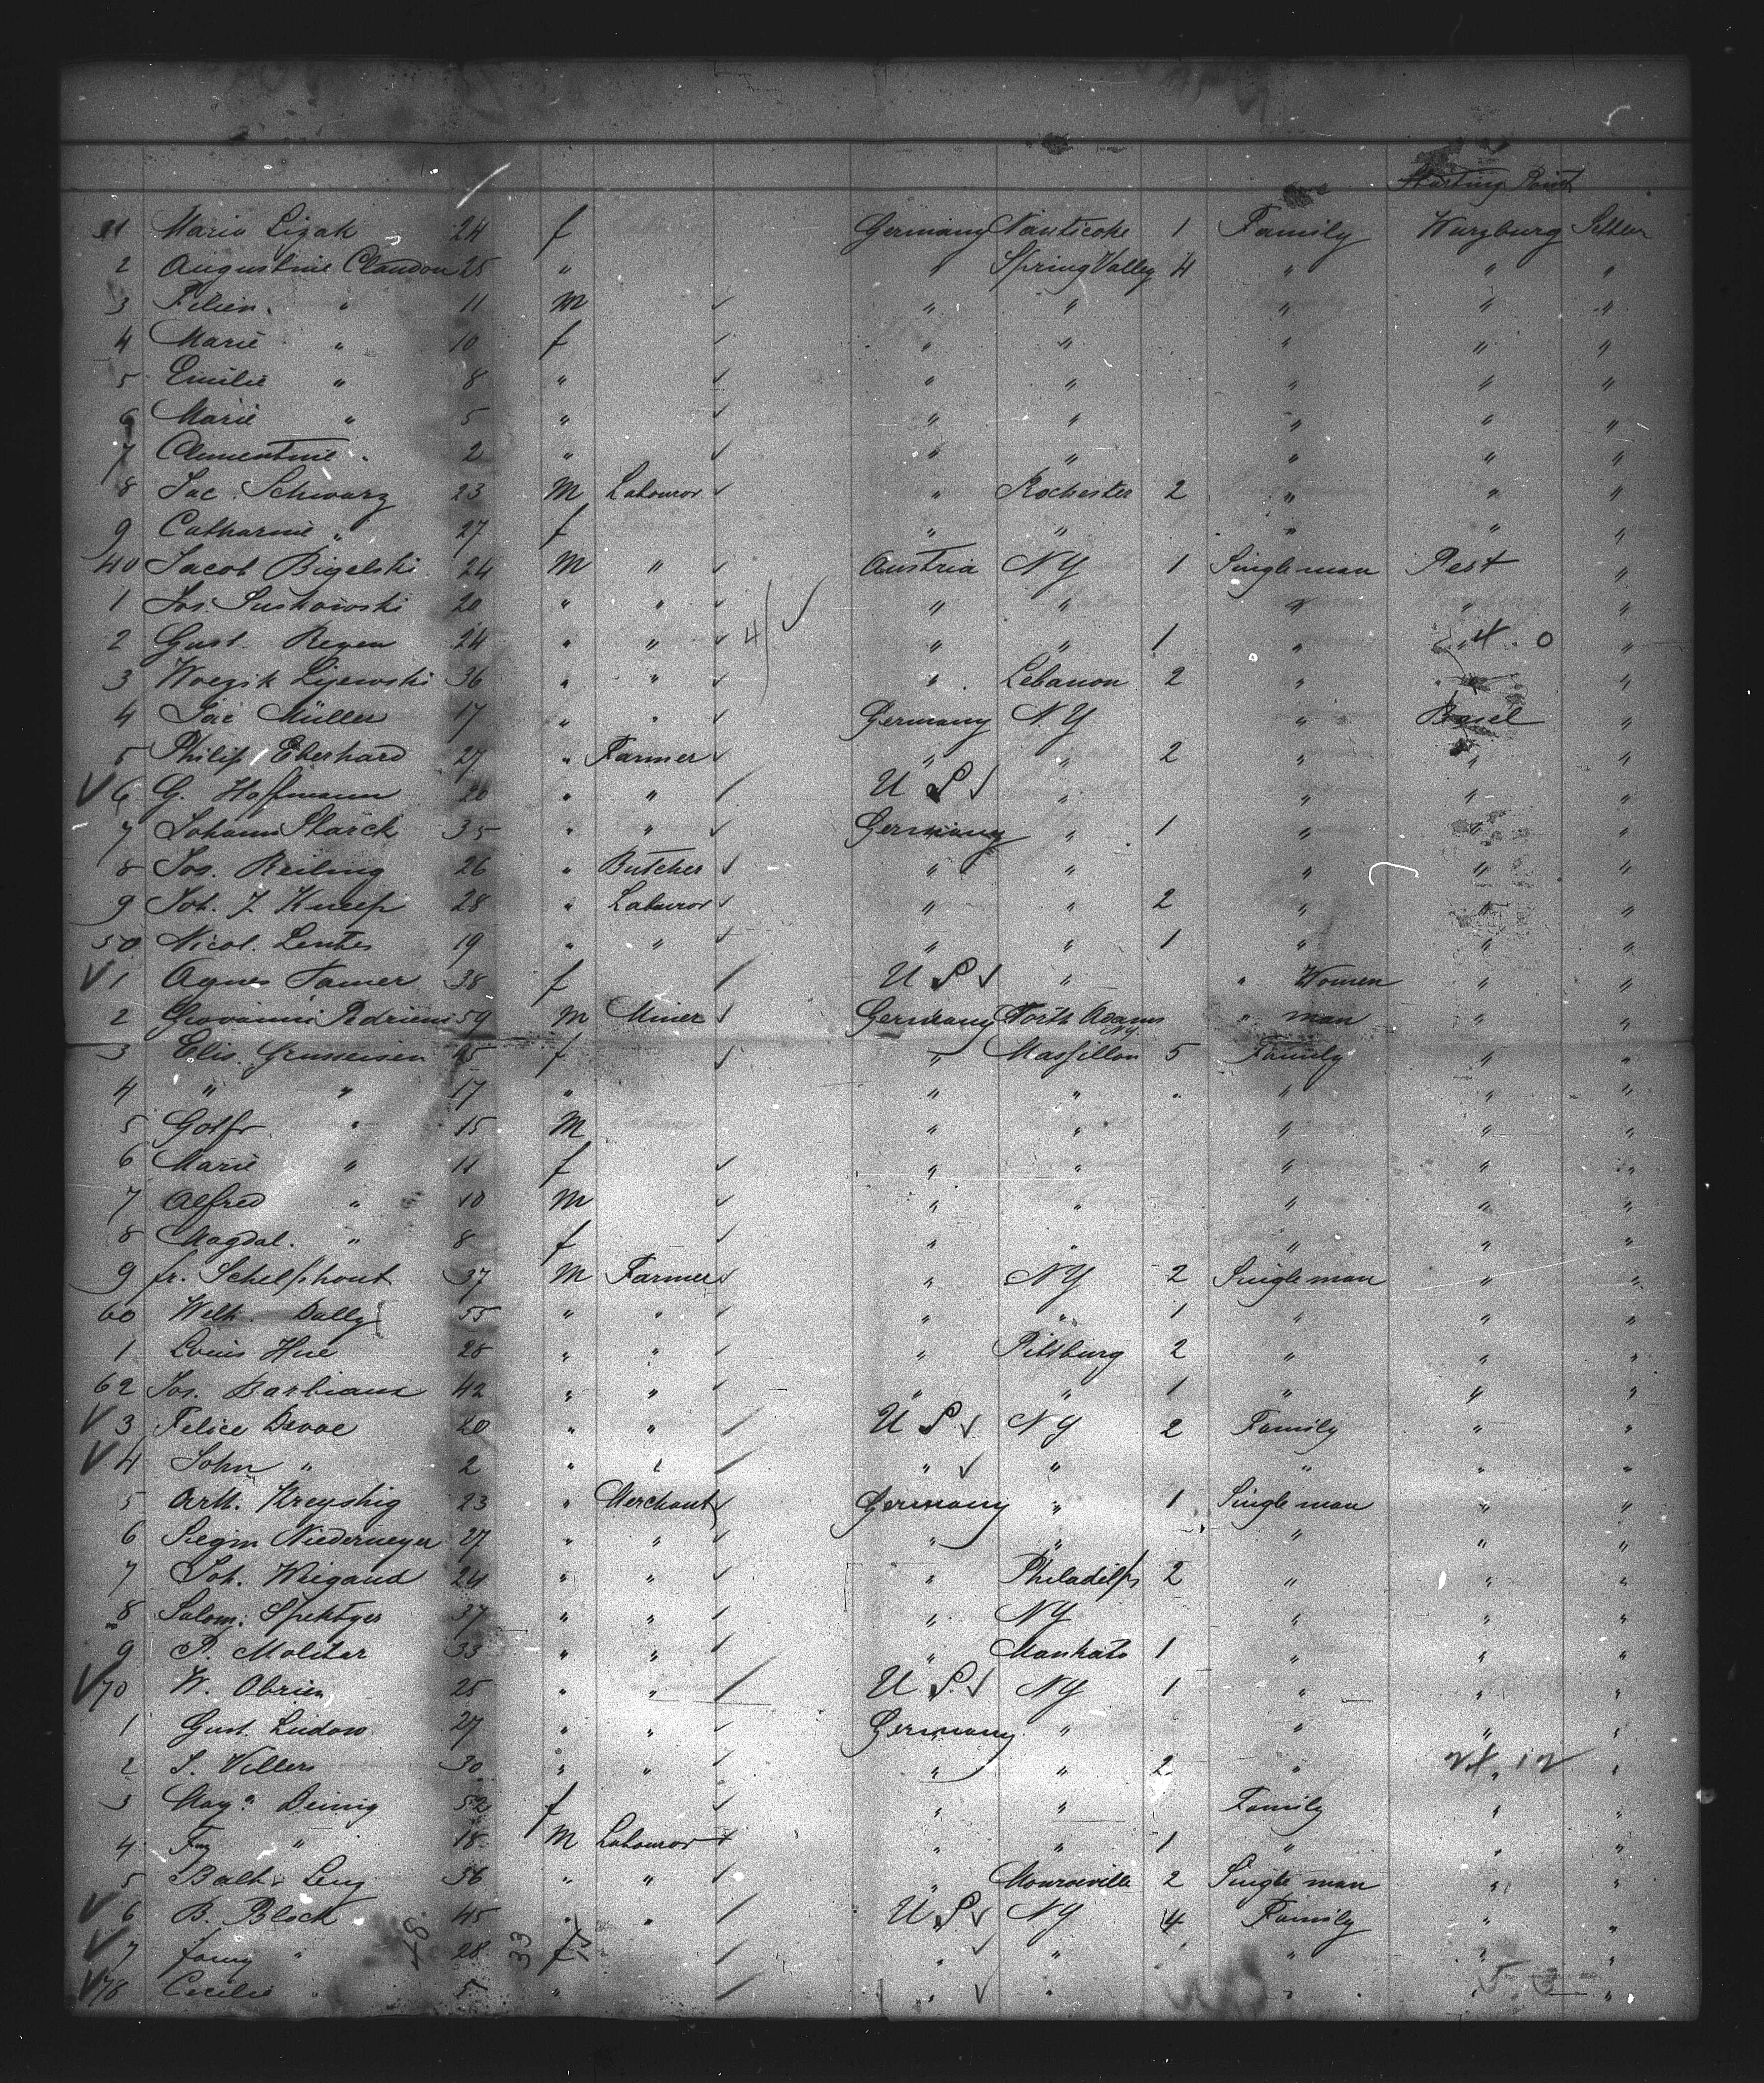 Starting Point
31 Maria Lizak 24 f Germany Nanticoke 1 Family Wurzburg Settler
2 Augustine Claudon 25 " " Spring Valley 4 " " "
3 Felicn. " 11 M " " " " "
4 Marie " 10 f " " " " "
5 Emilie " 8 " " " " " "
6 Marie " 5 " " " " " "
7 Clementine " 2 " " " " " "
8 Jac. Schwarz 23 M Labouror " Rochester 2 " " "
9 Catharine " 27 f " " " " "
40 Jacob Bigelski 24 M " Austria NY 1 Single man Pest "
1 Jos. Suskowski 20 " " " " " " "
2 Gust. Regen 24 " " 4 " " 1 " " 4 0 "
3 Woezik Lijewski 36 " " " Lebanon 2 " " "
4 Jac Müller 17 " " Germany N.Y " Basel "
5 Philip Eberhard 27 " Farmer " " 2 " " "
6 G. Hoffmann 20 " " U S " " " "
7 Johann Starck 35 " " Germany " 1 " " "
8 Jos. Reiling 26 " Butcher " " " " "
9 Joh. J. Kneep 28 " Labouror " " 2 " " "
50 Nicol. Lentes 19 " " " " 1 " " "
1 Agnes Tamer 38 f U S " " Women " "
2 Giovanni Pedrini 59 M Miner Germany North Adams NY. " man " "
3 Elis. Grusseisen 45 f " Massillon 5 Family " "
4 " " 17 " " " " " " "
5 Gotfr. " 15 M " " " " "
6 Marie " 11 f " " " " "
7 Alfred " 10 M " " " " "
8 Magdal. " 8 f " " " " "
9 fr. Schelfhout 37 M Farmer " NY 2 Single man " "
60 Welh. Dally 55 " " " " 1 " " "
1 Louis Hue 28 " " " Pittsburg 2 " " "
62 Jos. Barbiaux 42 " " " " 1 " " "
3 Felice Devoe 20 " " U S NY 2 Family " "
4 John " 2 " " " " " " "
5 Arth. Kreyshig 23 " Merchant Germany " 1 Single man " "
6 Siegm Niedermeyer 27 " " " " " " "
7 Joh. Weigand 24 " " " Philadelph 2 " " "
8 Salom. Spektger 37 " " " NY " " "
9 P. Molitar 33 " " " Mankato 1 " " "
70 W. Obrien 25 " " U S. NY 1 " " "
1 Gust. Ludow 27 " " Germany " " " "
2 S. Villers 30 " " " " 2 " 24 12 "
3 Mag. Deinig 52 f " " Family " "
4 Fry " 18 M Labouror " " 1 " " "
5 Balth. Leng 56 " " " Monroeville 2 Single man " "
6 B. Block 45 " " U S NY 4 Family " "
7 fanny " 28 f " " " " "
78 Cecilie " 5 " " " " " "
18 33 15 5 3